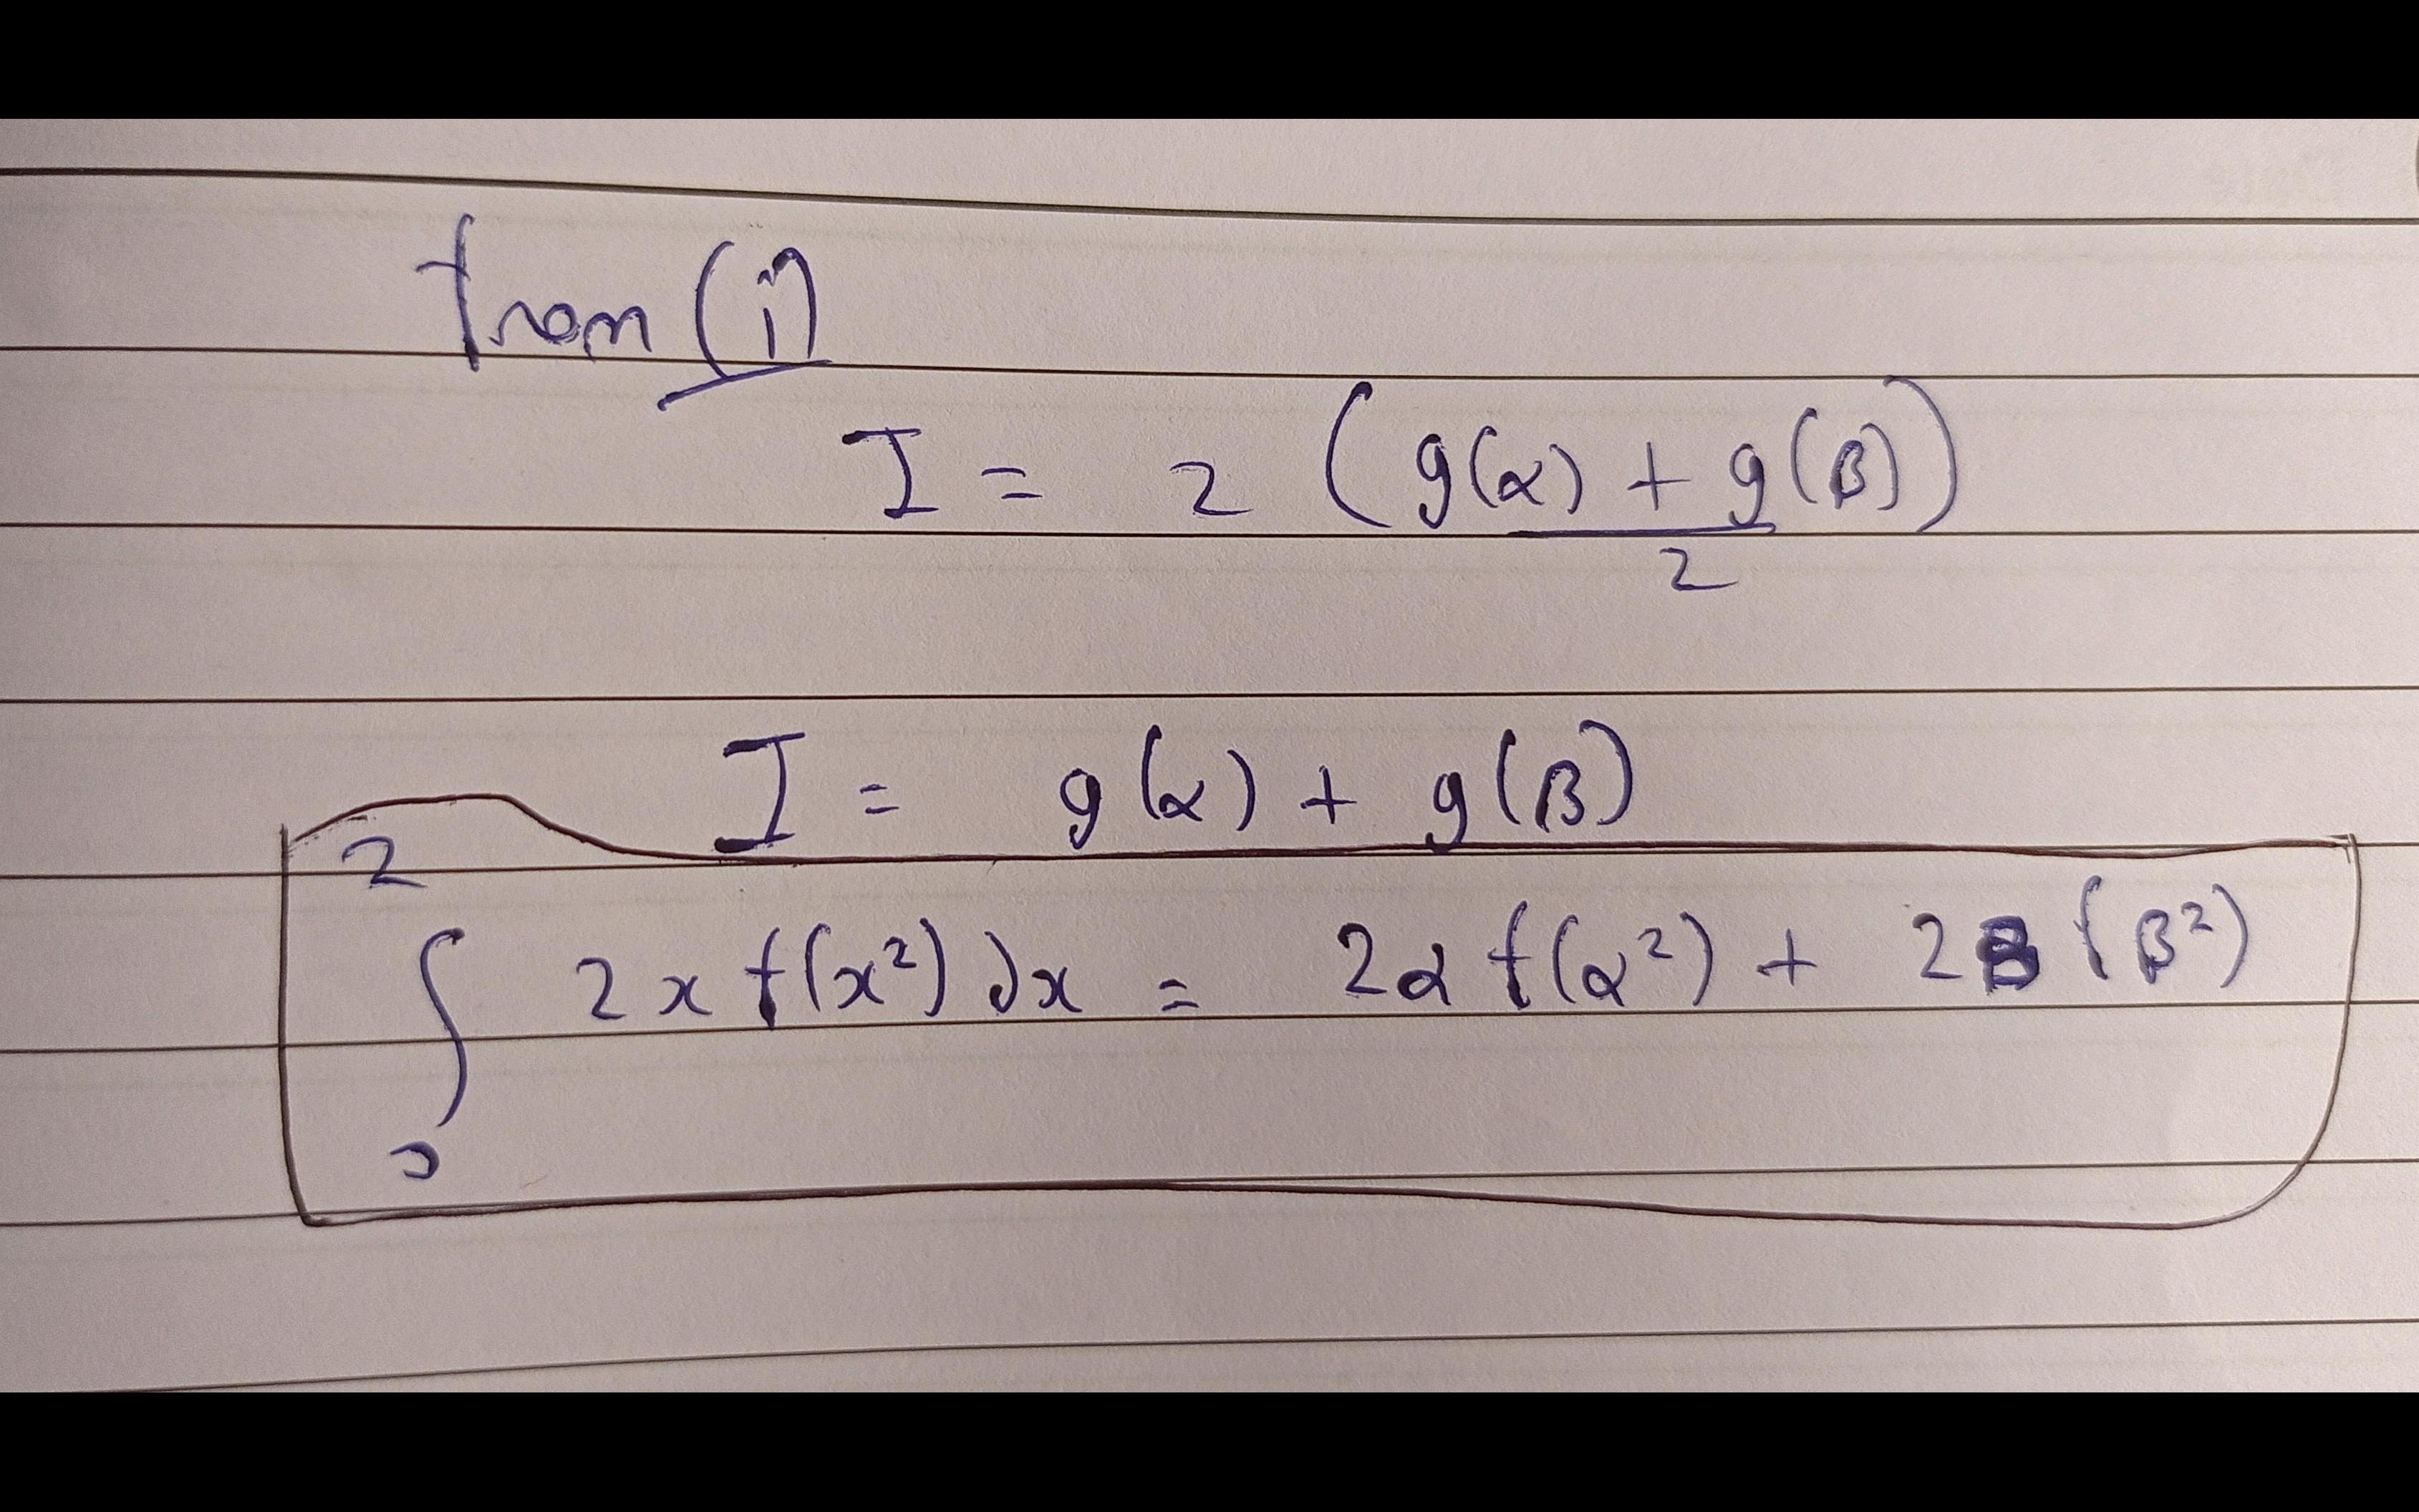 from (i)
I = 2 (g(α) + g(β) / 2)
I = g(α) + g(β)
∫₀² 2x f(x²) dx = 2α f(α²) + 2β f(β²)